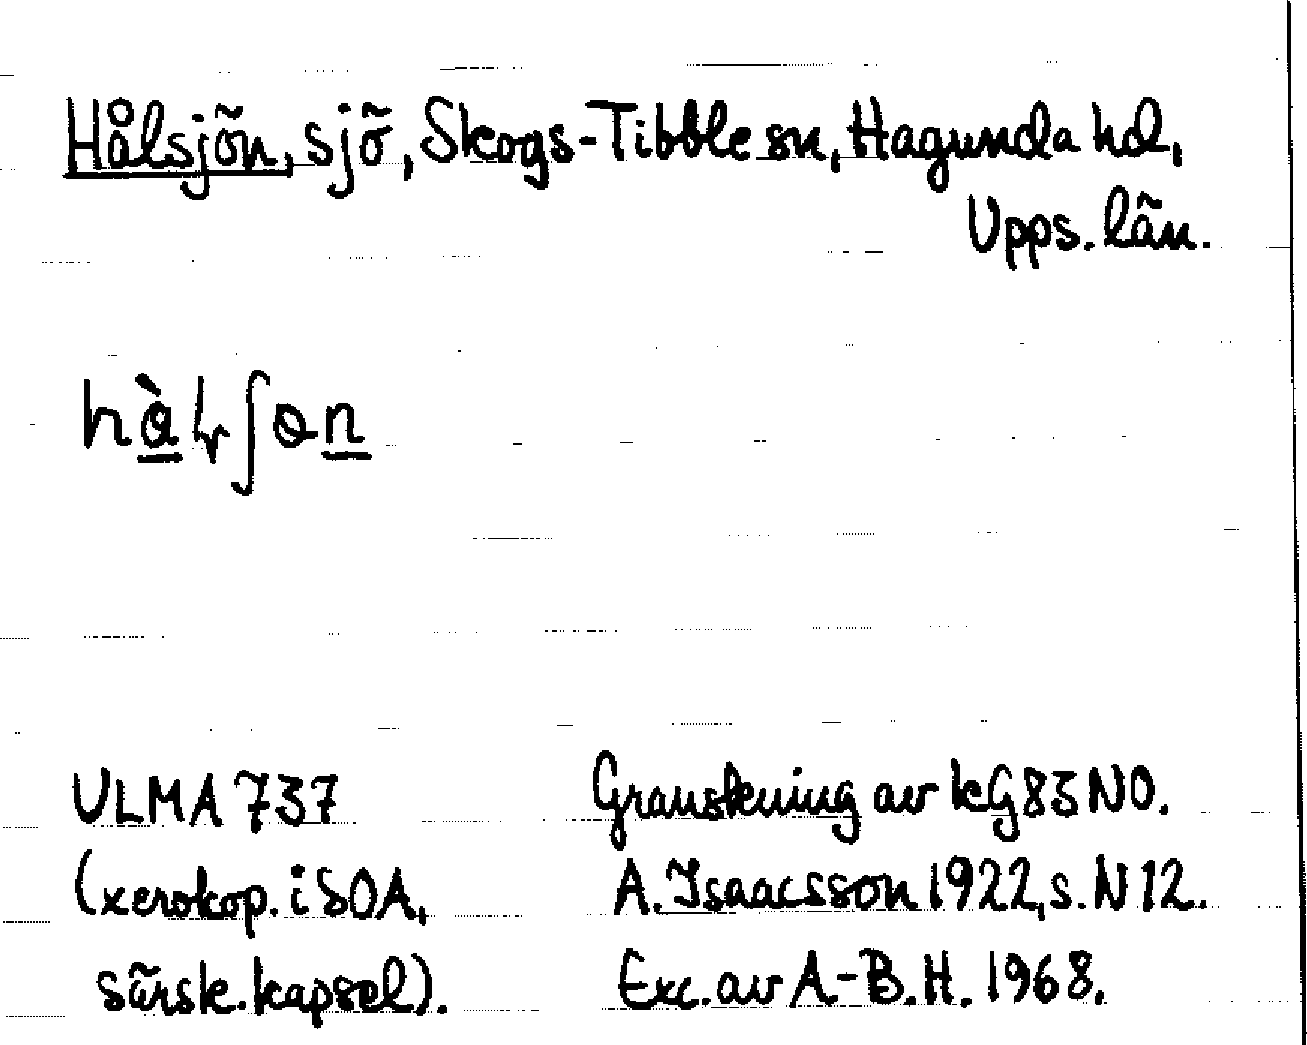 Hålsjön, sjö, Skogs-Tibble sn, Hagunda hd,
Upps. län.
ULMA 737
(xerokop. i SOA,
särsk. kapsel).
Granskning av kG 83 NO.
A. Isaacsson 1922, s. N 12.
Exc. av A-B.H. 1968.